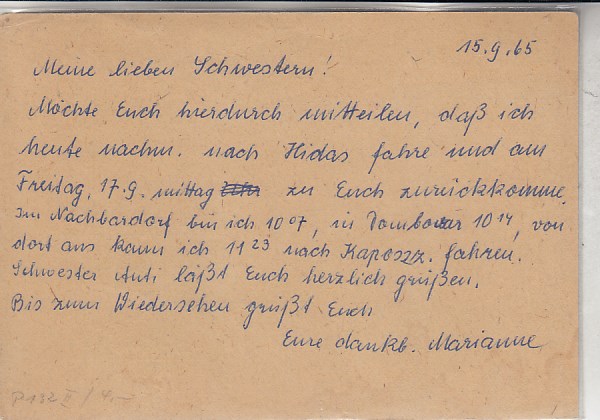 15.9.65
Meine lieben Schwestern!
Möchte Euch hierdurch mitteilen, daß ich
heute nachm. nach Hidas fahre und am
Freitag, 17.9. mittag zu Euch zurückkomme.
Im Nachbardorf bin ich 10 07, in Dombovar 10 14, von
dort aus kann ich 11 23 nach Kaposzz. fahren.
Schwester Anti läßt Euch herzlich grüßen.
Bis zum Wiedersehen grüßt Euch
Eure dankb. Marianne
P132 II / 4.-